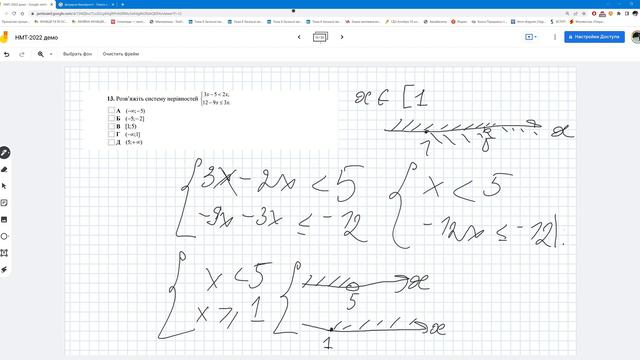 НМТ-2022 демо
Выбрать фон
Очистить фрейм
Настройки Доступа
13. Розв'яжіть систему нерівностей { 3x − 5 < 2x,
12 − 9x ≤ 3x.
А (−∞; −5)
Б (−5; −2]
В [1; 5)
Г (−∞; 1]
Д (5; +∞)
x ∈ [1
1 5 x
{ 3x − 2x < 5
−9x − 3x ≤ −12
{ x < 5
−12x ≤ −12|:
{ x < 5
x ≥ 1
{ 5 x
1 x